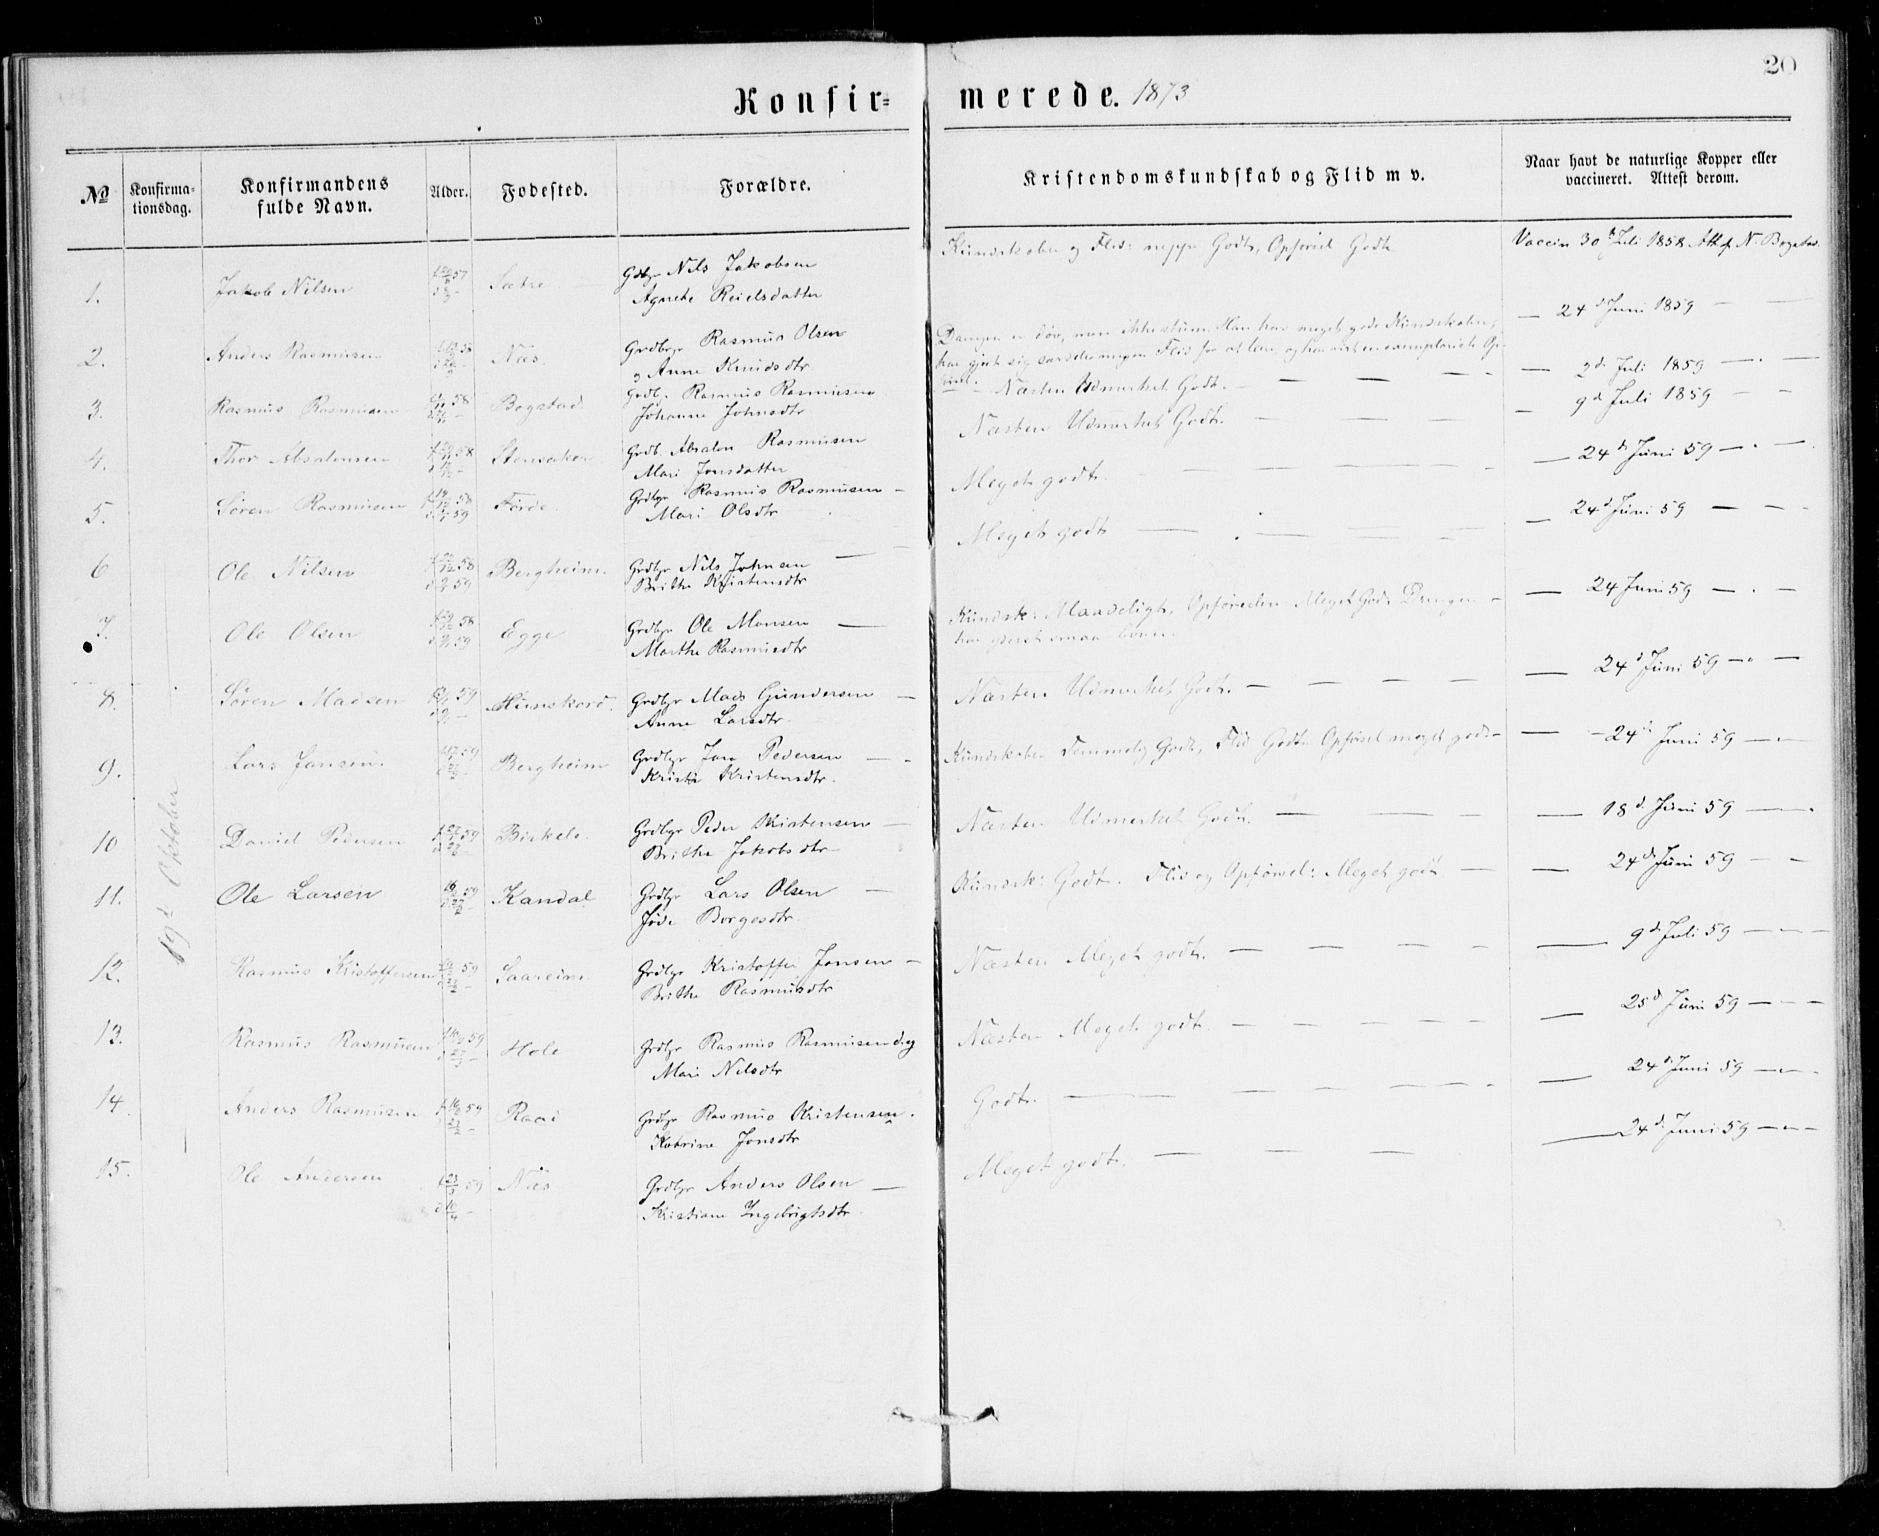 20
Konfir= merede. 1873
№ Konfirma=tionsdag. Konfirmandens fulde Navn. Alder. Fodested. Forældre. Kristendomskundskab og Flid m v. Naar havt de naturlige Kopper eller vaccineret. Attest derom.
19d Oktober
1. Jakob Nilsen 57 Sætre Gdbr Nils Jakobsen
Agnete Reielsdatter
Kundskaber og Flid: neppe Godt, Opførsel Godt
Vaccin 30 Juli 1858 Att. f. N. Bogstad
2. Anders Rasmussen 58 Næs. Grdbgr Rasmus Olsen
og Anne Knudsdtr
Drengen er døv, men ikke stum. Han har meget gode Kundskaber,
har gjort sig særdeles megen Flid for at lære, og har vist en exemplarisk Op-
førsel.
— 24d Juni 1859 — —
3. Rasmus Rasmusen 58 Bogstad Grdbr Rasmus Rasmusen
Johanne Johnsdtr
— Næsten Udmerket Godt. — — — —
— 2d Juli 1859 — —
4. Thor Absalonsen 58 Stensaker Grdb. Absalon Rasmusen
Mari Jonsdatter
Næsten Udmerket Godt. — — —
— 9d Juli 1859 — —
5. Søren Rasmusen 58 59 Förde Grdbgr Rasmus Rasmusen —
Mari Olsdtr
Meget godt. — — — —
— 24d Juni 59 — —
6 Ole Nilsen 58 59 Bergheim. Grdbr Nils Johnsen —
Brithe Kristensdtr
Meget godt — — — —
— 24d Juni 59 — —
7. Ole Olsen 58 59 Egge Grdbr Ole Monsen —
Marthe Rasmusdtr
Kundsk: Maadeligt, Opførselen Meget God. Drengen
har yderst smaa Evner.
— 24 Juni 59 — —
8. Søren Madsen 59 Hunskord. Grdbr Mads Gundersen —
Anne Larsdtr.
Næsten Udmerket Godt. — — — —
— 24d Juni 59 — —
9. Lars Jonsen. 59 Bergheim Grdbr Jon Pedersen —
Kristi Kristensdtr.
Kundskaber Temmelig Godt, Flid Godt Opførsel meget god
— 24d Juni 59 —
10 Daniel Pedersen 59 Birkelo. Grdbgr Peder Kristensen —
Brithe Jakobsdtr
Næsten Udmerket Godt. — — —
— 18d Juni 59 —
11. Ole Larsen 59 Kandal Grdbr Lars Olsen —
Jøde Borgesdtr.
Kundsk: Godt. Flid og Opførsel: Meget godt. —
— 24d Juni 59 — —
12. Rasmus Kristoffersen 59 Saareim. Grdbr Kristoffer Jonsen —
Brithe Rasmusdtr
Næsten Meget godt. — — — —
— 9d Juli 59 — —
13. Rasmus Rasmusen 59 Hole Grdbr Rasmus Rasmusen d.y
Mari Nilsdtr
Næsten Meget godt. — — — —
— 25d Juni 59 — —
14. Anders Rasmusen 59 Raai Grdbr Rasmus Kristensen.
Katrine Jonsdtr
Godt. — — — — —
— 24d Juni 59 — —
15. Ole Andersen 59 Næs Grdbr Anders Olsen —
Kristiane Ingebrigtsdtr.
Meget godt. — — —
— 24d Juni 59 — —